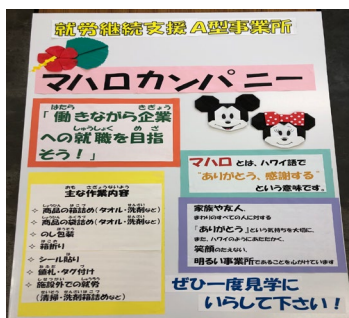 就労継続支援A型事業所
マハロカンパニー
「働きながら企業
への就職を目指
そう！」
マハロとは、ハワイ語で
"ありがとう、感謝する"
という意味です。
主な作業内容
商品の箱詰め(タオル・洗剤など)
商品の袋詰め(タオル・洗剤など)
のし包装
箱折り
シール貼り
値札・タグ付け
施設外での就労
(清掃・洗剤箱詰めなど)
家族や友人、
まわりのすべての人に対する
「ありがとう」という気持ちを大切に、
また、ハワイのようにあたたかく、
笑顔のたえない、
明るい事業所であることを心がけています
ぜひ一度見学に
いらして下さい！